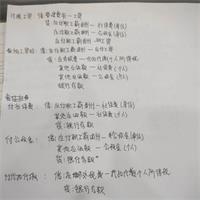 计提工资: 借: 管理费用—工资
贷: 应付职工薪酬—社保费(单位)
应付职工薪酬—公积金(单位)
应付职工薪酬—工资
发放工资时: 借: 应付职工薪酬—工资
贷: 应交税费—代扣代缴个人所得税
其他应收款—社保费(个人)
其他应收款—公积金(个人)
银行存款
付社保费: 借: 应付职工薪酬—社保费(单位)
其他应收款—社保费(个人)
贷: 银行存款
付公积金: 借: 应付职工薪酬—公积金(单位)
其他应收款—公积金(个人)
贷: 银行存款
借: 应交税费—代扣代缴个人所得税
贷: 银行存款